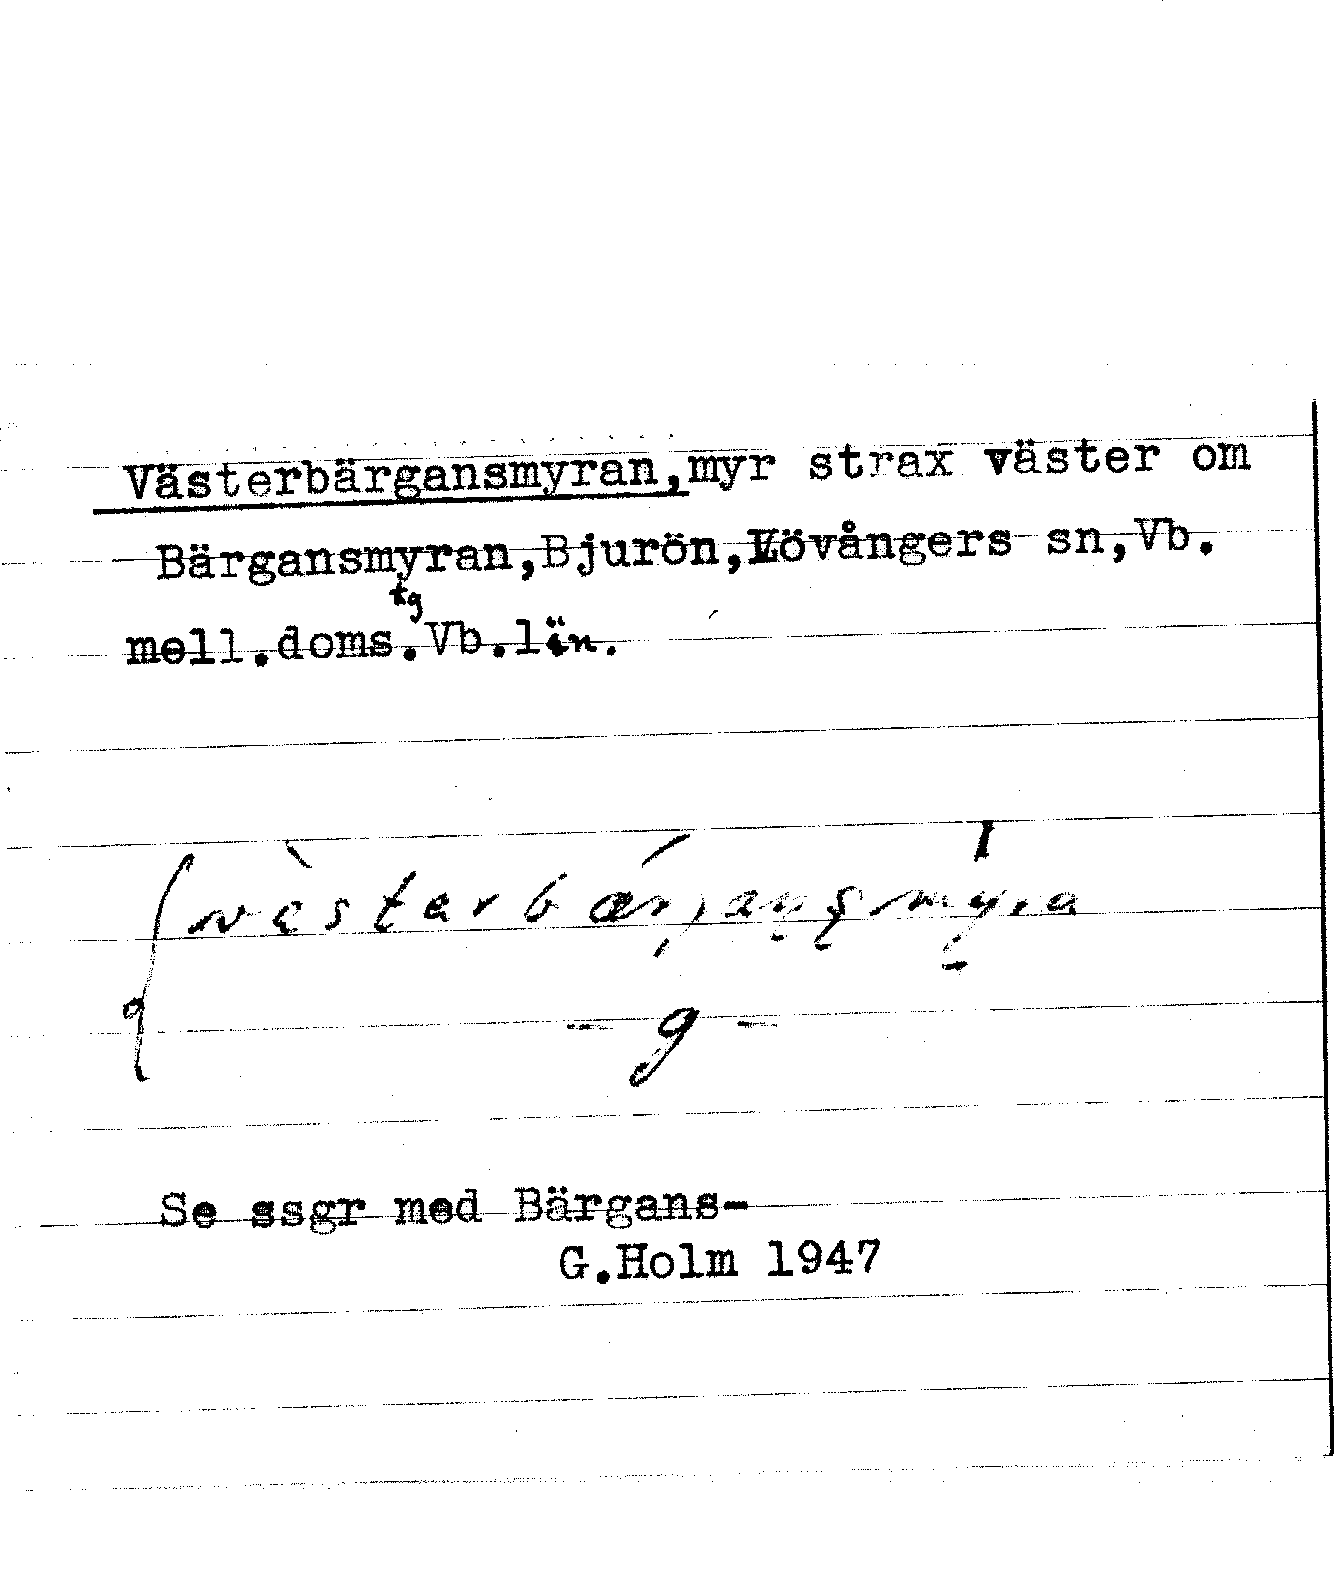 Västerbärgansmyran,myr strax väster om
Bärgansmyran,Bjurön,Lövångers sn,Vb.
mell.doms.tg Vb.län.
- g -
Se ssgr med Bärgans-
G.Holm 1947